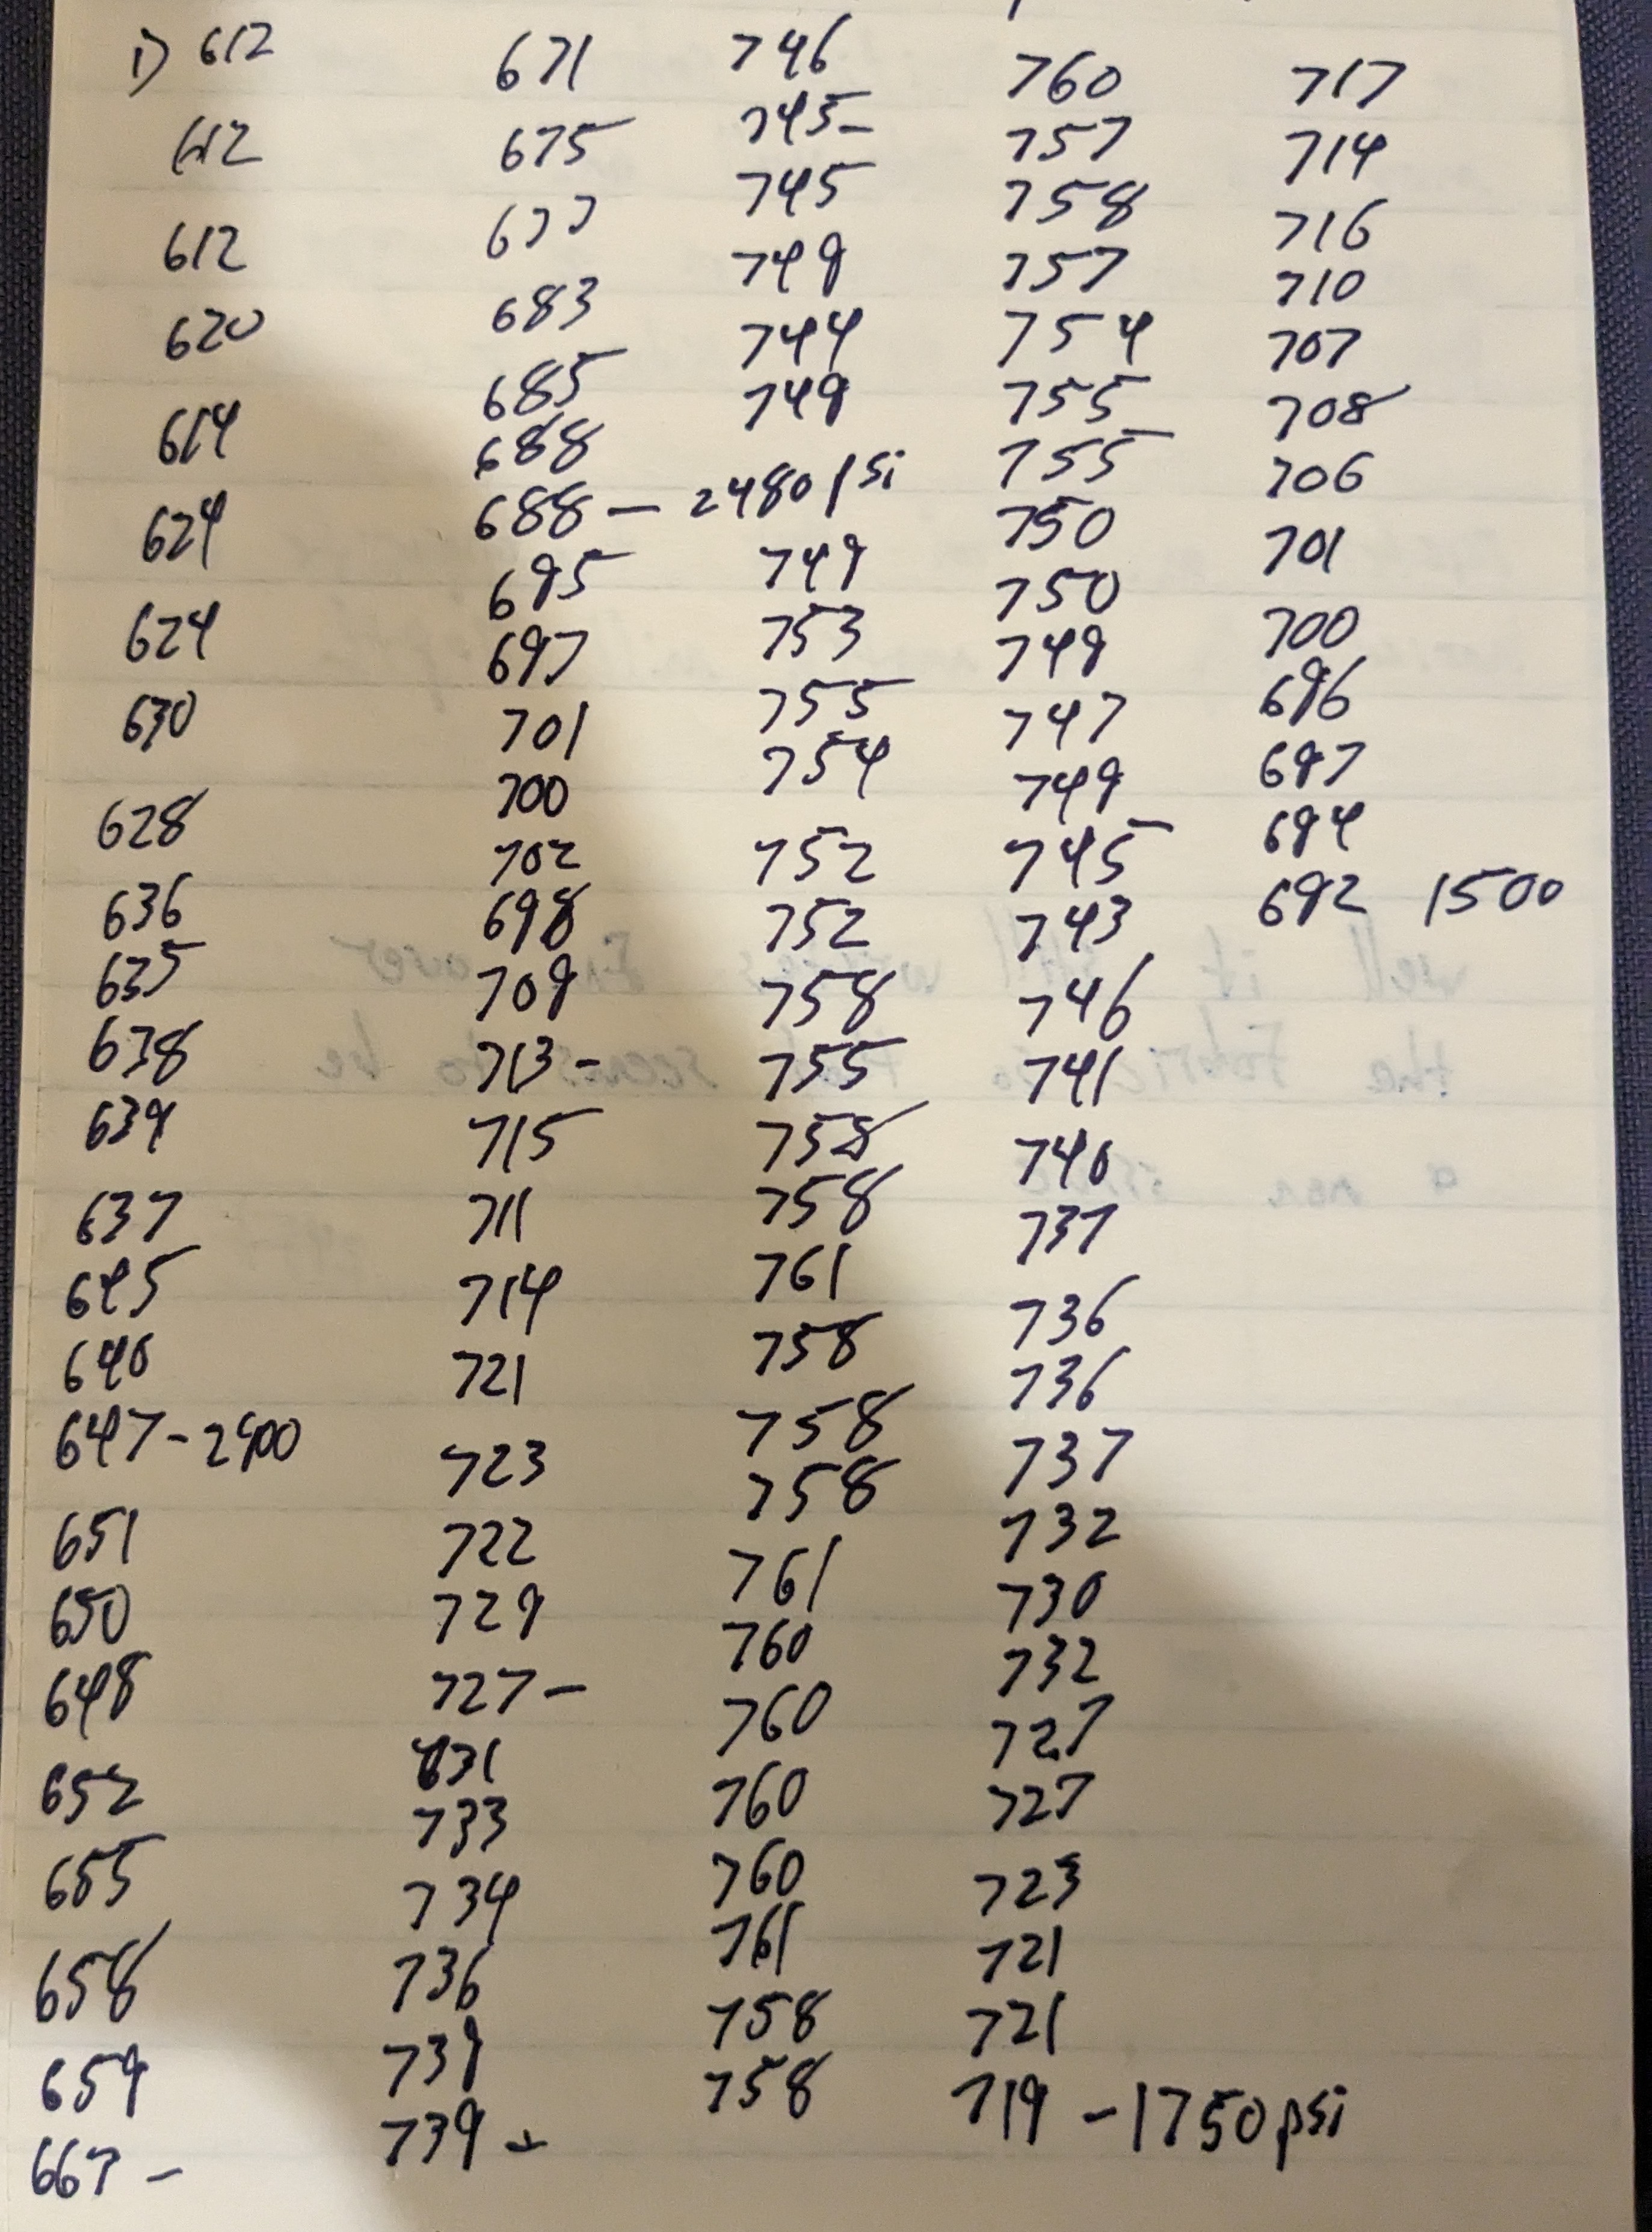 1) 612
612
612
620
614
624
624
630
628
636
635
638
639
637
645
640
647 - 2400
651
650
648
652
655
658
659
667 -
671
675
677
683
685
688
688 - 2480 psi
695
697
701
700
702
698
709
713 -
715
711
714
721
723
722
729
727 -
731
733
734
736
739
739 -
746
745 -
745
749
744
749
749
753
755
754
752
752
758
755
758
758
761
758
758
758
761
760
760
760
760
761
758
758
760
757
758
757
754
755
755
750
750
749
747
749
745
743
746
741
740
737
736
736
737
732
730
732
727
727
723
721
721
719 - 1750 psi
717
714
716
710
707
708
706
701
700
696
697
694
692 1500